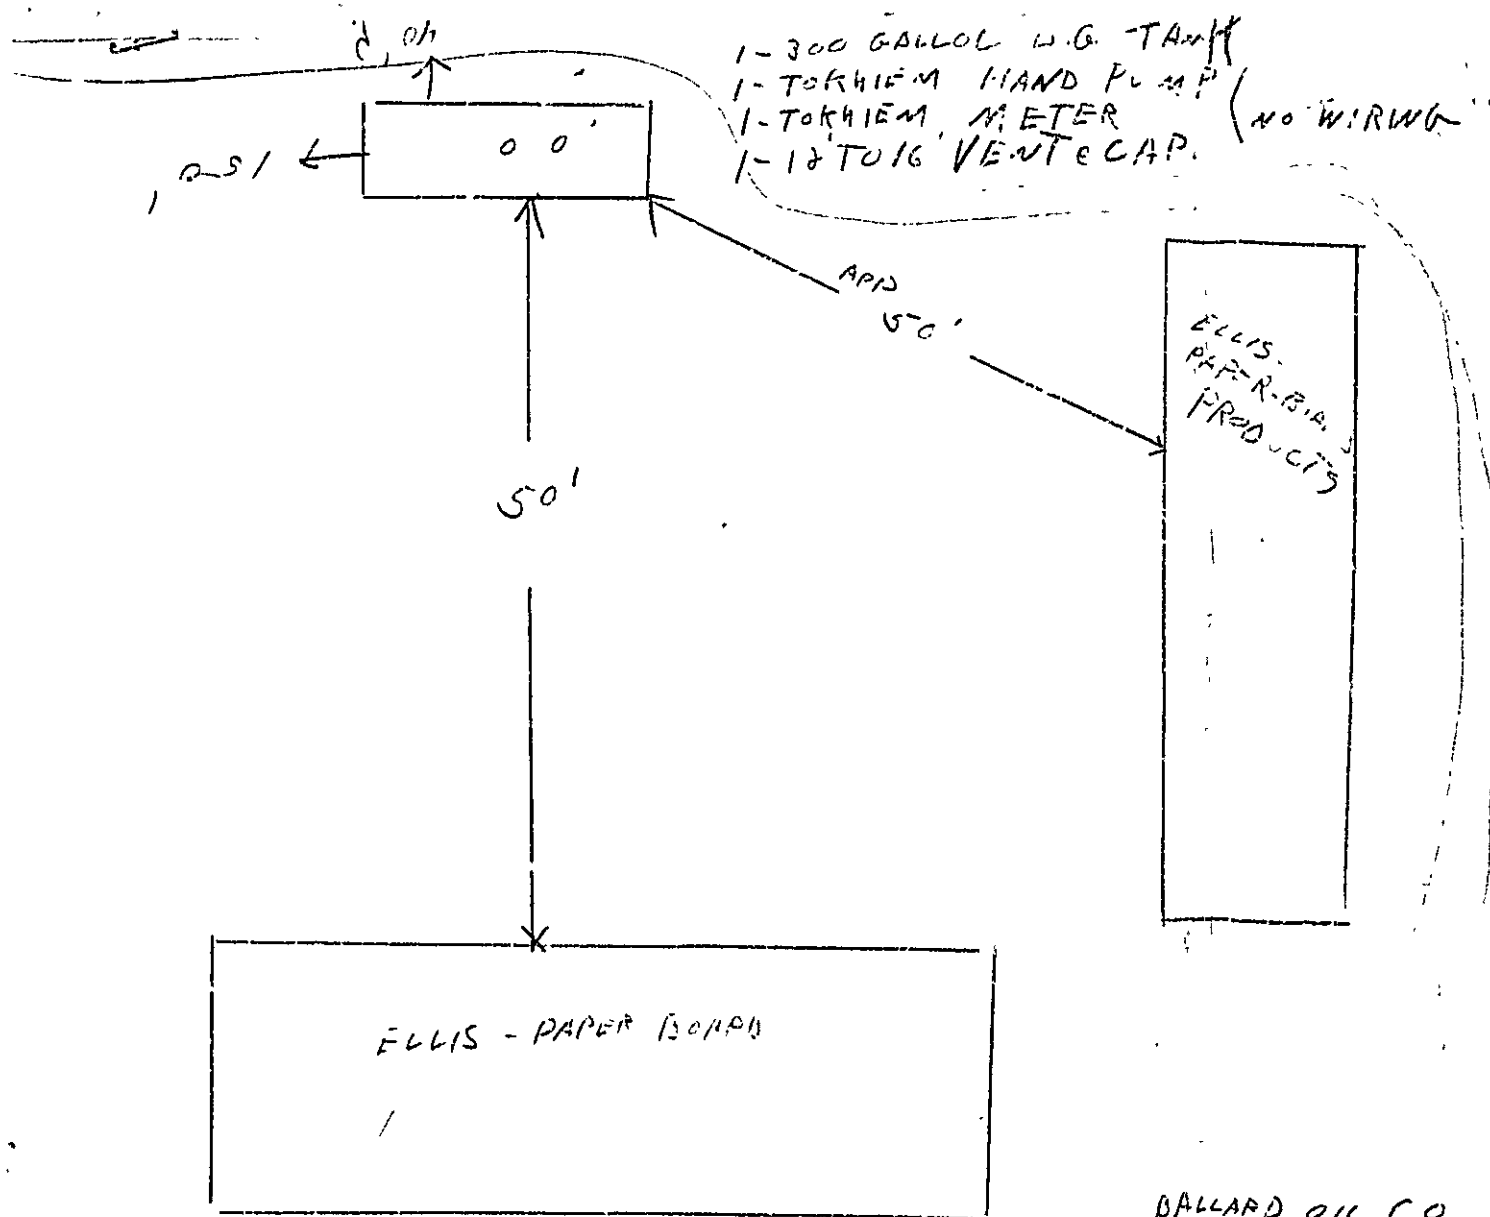 1-300 GALLOL U.G. TANK
1-TOKHIEM HAND PUMP
1-TOKHIEM METER (NO WIRING
1-12' TO 16' VENT & CAP.
40'
150'
APP
50'
50'
ELLIS-
PAPER-B
PRODUCTS
ELLIS - PAPER BOARD
BALLARD OIL CO